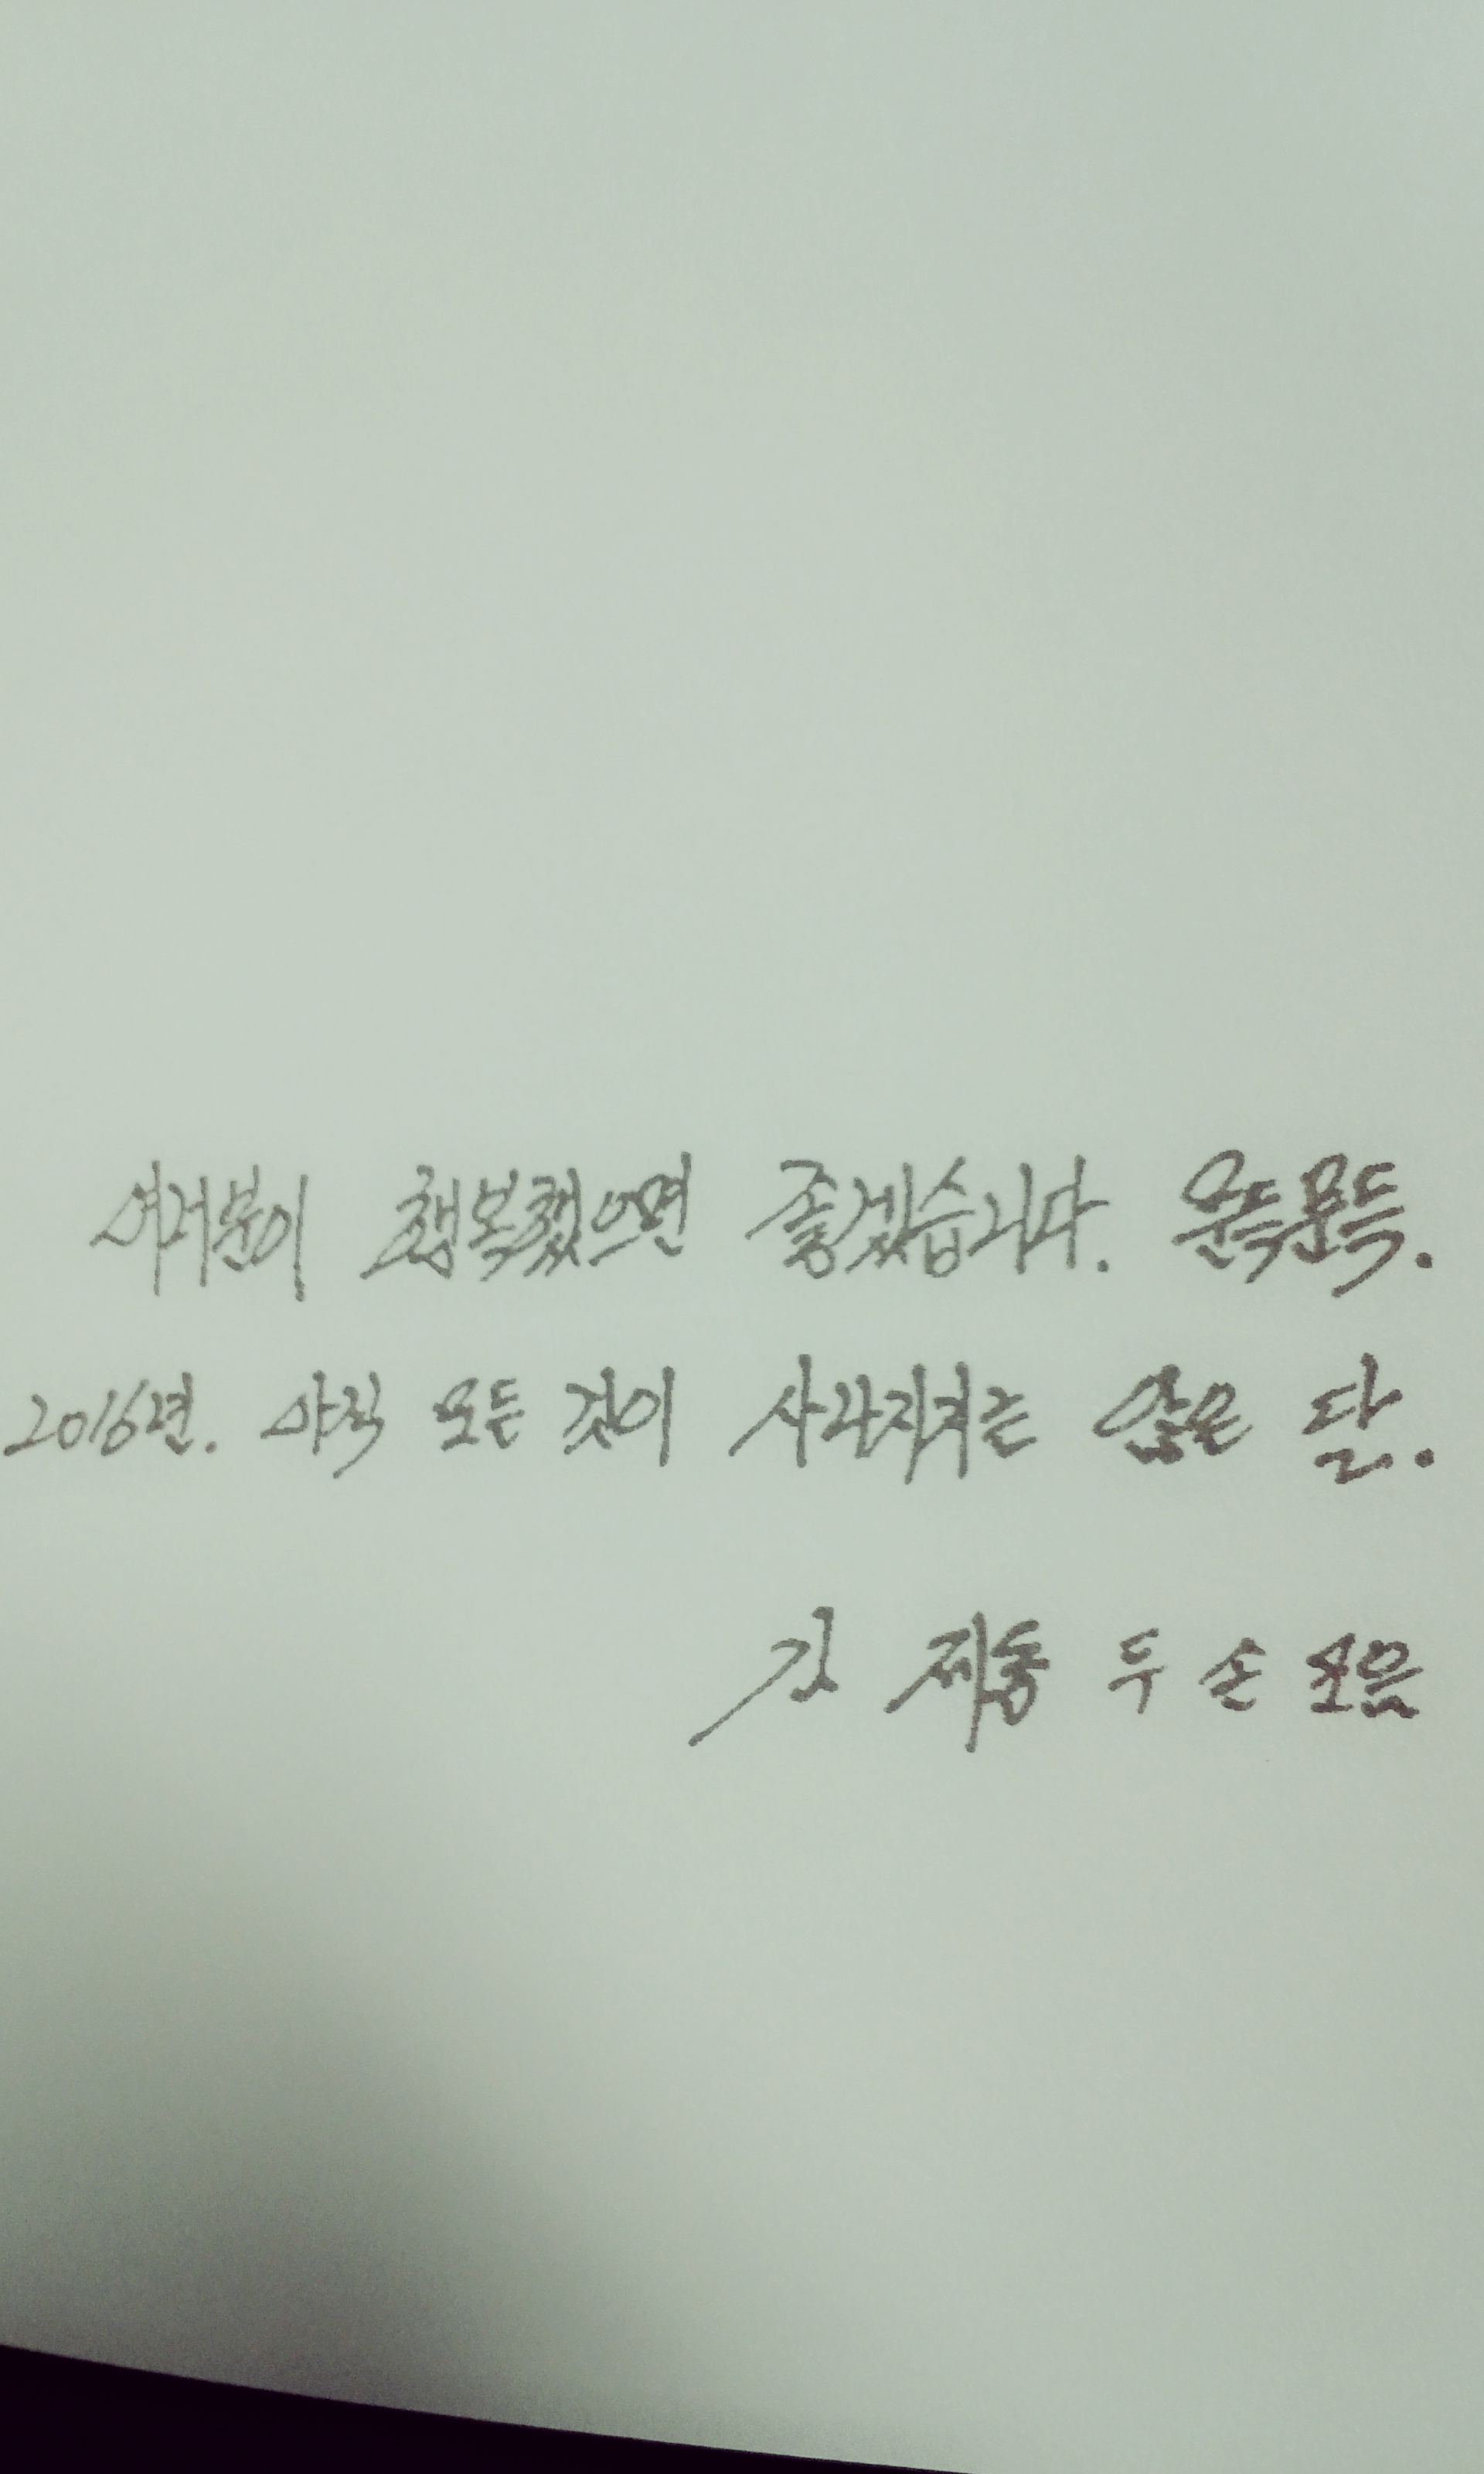 여러분이 행복했으면 좋겠습니다. 문득문득.
2016년. 아직 모든 것이 사라지지는 않은 달.
김제동 두 손 모음